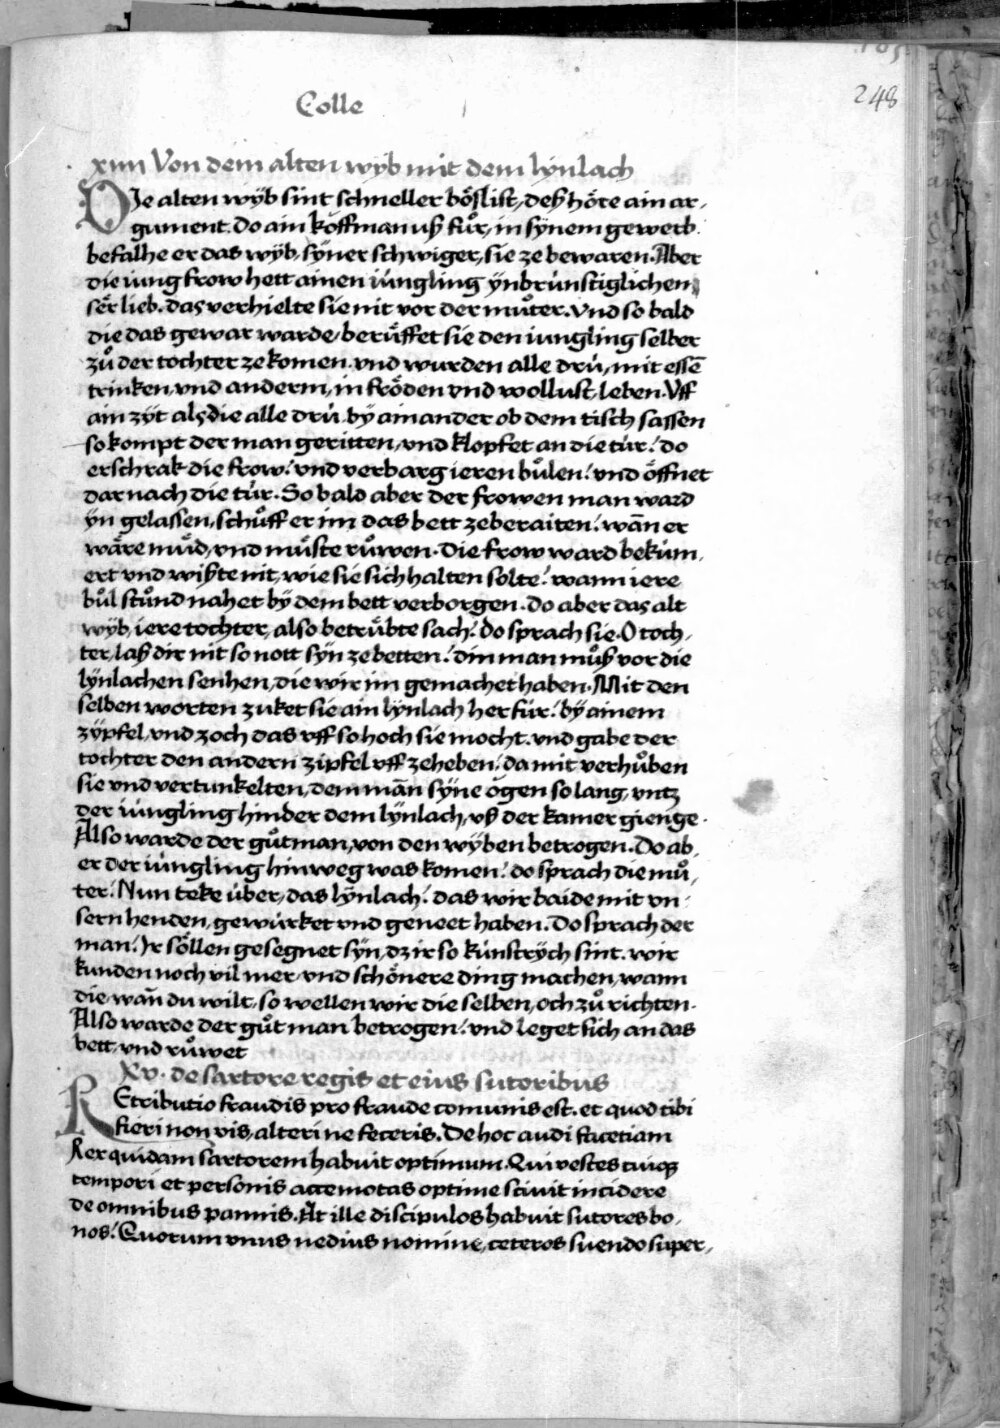 248
Colle
xiiii Von dem alten wyb mit dem lynlach
DIe alten wÿb sint schneller böslist, deß höre ain ar,
gument. Do ain köffman uß fůr, in sÿnem gewerb.
befalhe er das wÿb, sÿner schwiger, sie ze bewaren. Aber
die iung frow hett ainen iúngling ÿnbrúnstiglichen
ser lieb. das verhielte sie nit vor der můter. Vnd so bald
die das gewar warde, berůffet sie den iungling selber
zů der tochter ze komen. vnd wurden alle drú, mit essē
trinken, vnd anderm, in fröden vnd wollust, leben. Vff
ain zÿt als die alle drú. bÿ ain ander ob dem tisch sassen
so kompt der man geritten, vnd klopfet an die túr. do
erschrak die frow. vnd verbarg ieren bůlen. vnd öffnet
dar nach die túr. So bald aber der frowen man ward
ÿn gelassen, schůff er im das bett ze beraiten. wān er
wäre můd, vnd můste růwen. Die frow ward bekúm,
ert vnd wißte nit, wie sie sich halten solte. wann iere
bůl stůnd nahet bÿ dem bett verborgen. Do aber das alt
wÿb, iere tochter, also betrůbte sach. do sprach sie. O toch,
ter, laß dir nit so nott sÿn ze betten. din man můß vor die
lÿnlachen senhen, die wir im gemachet haben. Mit den
selben worten zuket sie ain lÿnlach her fúr. bÿ ainem
zÿpfel, vnd zoch das vff so hoch sie mocht. vnd gabe der
tochter den andern zipfel vff ze heben. da mit verhůben
sie vnd vertunkelten, dem mān sÿne ögen so lang, vntz
der iúngling hinder dem lÿnlach, vß der kamer gienge.
Also warde der gůt man, von den wÿben betrogen. Do ab,
er der iúngling hinweg was komen. do sprach die můˏ
ter. Nun teke úber, das lÿnlach. das wir baide mit vnˏ
sern henden, gewúrket vnd geneet haben. Do sprach der
man. Ir söllen gesegnet sÿn, dz ir so kúnstrÿch sint. wir
kunden noch vil mer, vnd schönere ding machen, wann
die, wan du wilt, so wellen wir die selben, och zů richten.
Also warde der gůt man betrogen. vnd leget sich an das
bett, vnd růwet
Xv. de sartore regis et eius sutoribus
REtributio fraudis pro fraude comunis est. et quod tibi
fieri non vis, alteri ne feceris. De hoc audi facetiam
Rex quidam sartorem habuit optimum. Qui vestes cuiqꝫ
tempori et personis accemotas optime scivit incidere
de omnibus pannis. At ille discipulos habuit sutores boˏ
nos. Quorum vnus nedius nomine, ceteros suendo super,